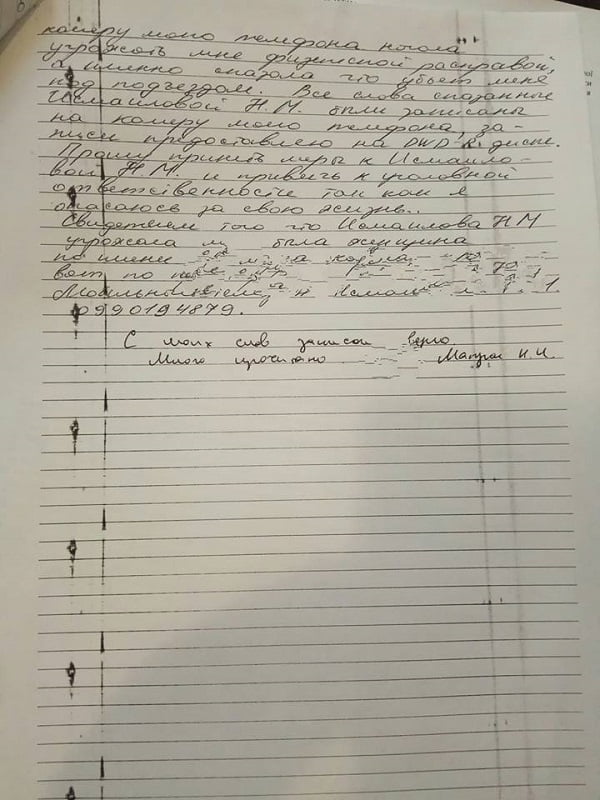 камеру моего телефона начала
угрожать мне физической расправой,
а именно сказала что убьет меня
под подъездом. Все слова сказанные
Исмаиловой Н.М. были записаны
на камеру моего телефона, за-
писи предоставлено на DWD-R диске.
Прошу принять меры к Исмаило-
вой Н.М. и привлечь к уголовной
ответственности так как я
опасаюсь за свою жизнь..
Свидетелем того что Исмаилова Н М
угрожала была женщина
по имени
вает по
0990194879.
С моих слов записан верно.
Мною прочитано